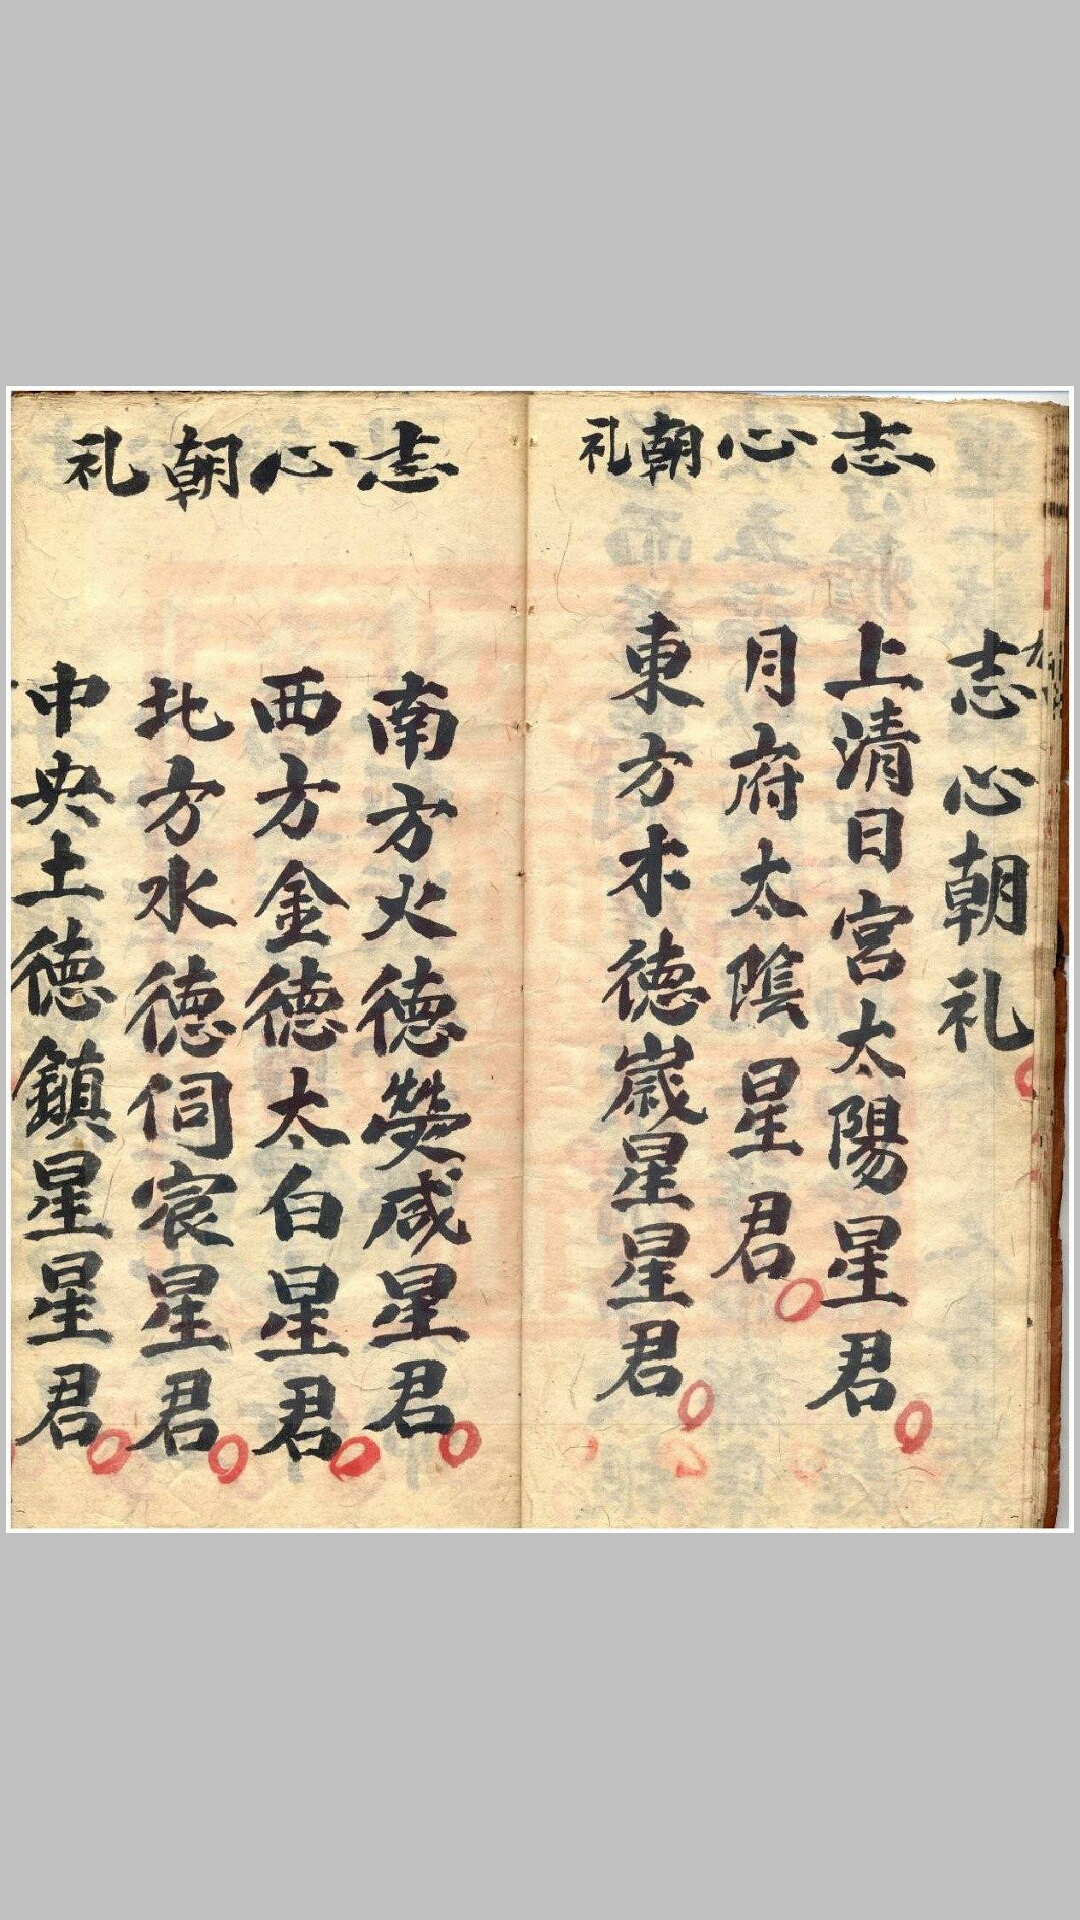 志心朝礼
志心朝礼
上清日宮太陽星君
月府太陰星君
東方木德歲星星君
志心朝礼
南方火德熒咸星君
西方金德太白星君
北方水德伺宸星君
中央土德鎮星星君